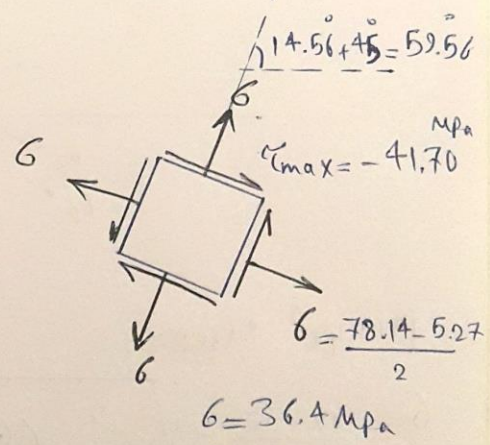 14.56° + 45° = 59.56°
6
6
τmax = -41.70 MPa
6
6 = 78.14 - 5.27 / 2
6 = 36.4 MPa